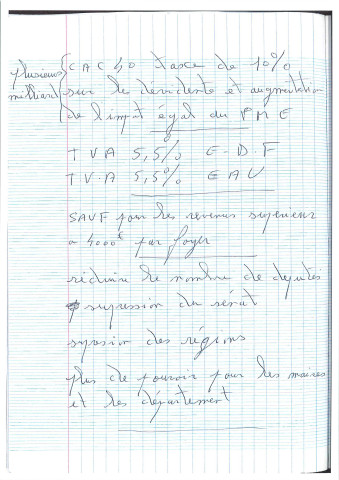 plusieurs { CAC 40 taxe de 10%
milliard sur les dividente et augmentation
de l'impôt égal du PME
TVA 5,5% E-DF
TVA 5,5% EAU
SAUF pour les revenus superieur
a 4000€ par foyer
réduire le nombre de deputés
supression du sénat
supression des régions
plus de pouvoir pour les maires
et les département